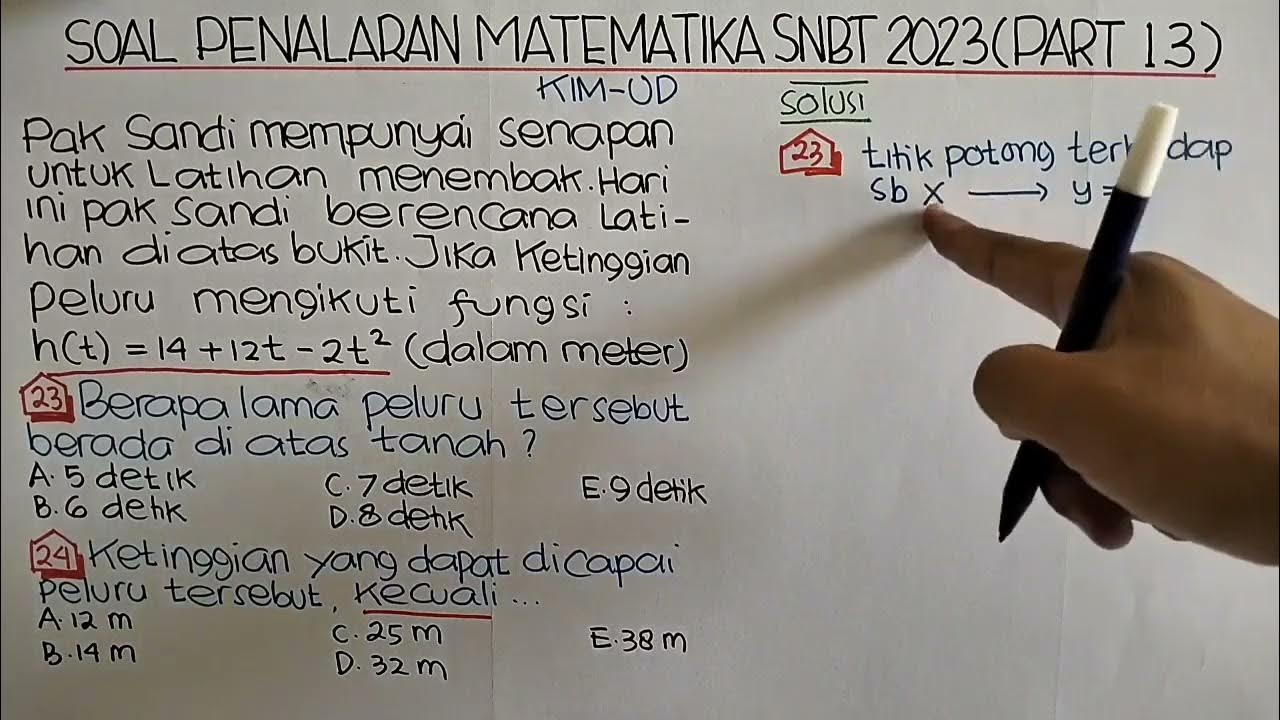 SOAL PENALARAN MATEMATIKA SNBT 2023 (PART 13)
KIM-UD
Pak Sandi mempunyai senapan
untuk Latihan menembak. Hari
ini pak sandi berencana Lati-
han diatas bukit. Jika Ketinggian
peluru mengikuti fungsi :
h(t) = 14 + 12t - 2t² (dalam meter)
23 Berapa lama peluru tersebut
berada di atas tanah ?
A. 5 detik
C. 7 detik
E. 9 detik
B. 6 detik
D. 8 detik
24 Ketinggian yang dapat dicapai
peluru tersebut, Kecuali ...
A. 12 m
C. 25 m
E. 38 m
B. 14 m
D. 32 m
SOLUSI
23 titik potong
sb x → y =